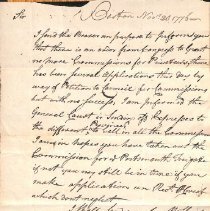 Boston Novr. 20 1776
Sir
I send the Bearer on purpose to inform you
that there is an order from Congress to Grant
no more Commissions for Privateers, there
has been several applications this day by
way of Petition to Council for Commissions
but with no success, I am informed the
General Court to send Expresses to
the different to call in all the Commissions
I am in hopes you have taken out the
Commission for Portsmouth
if not you may still be in time if you
make application
which dont neglect